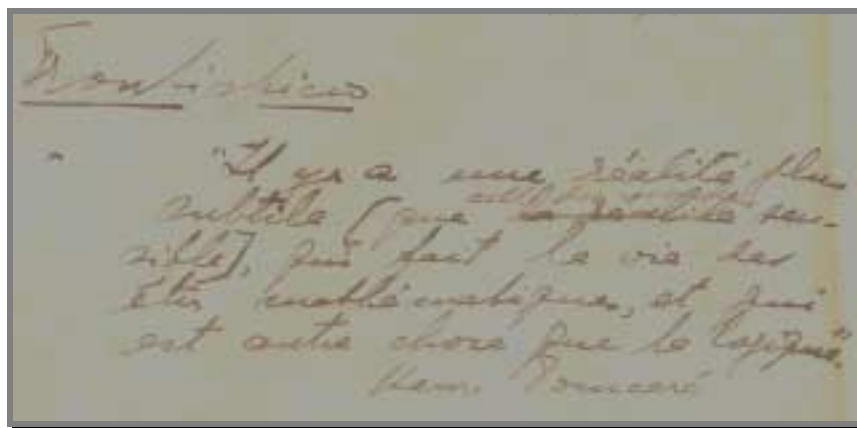 Frontispicio
"Il y a une réalité plus
subtile [que la réalité sen-
sible], qui fait la vie des
êtres mathématiques, et qui
est autre chose que la logique."
Henri Poincaré